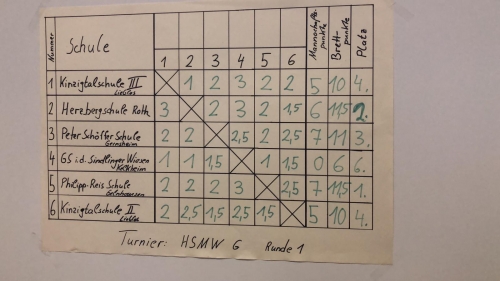 Nummer Schule 1 2 3 4 5 6 Mannschafts-punkte Brett-punkte Platz
1 Kinzigtalschule III Lieblos 1 2 3 2 2 5 10 4.
2 Herzbergschule Roth 3 2 3 2 1,5 6 11,5 2.
3 Peter Schöffer Schule Gernsheim 2 2 2,5 2 2,5 7 11 3.
4 GS i.d. Sindlinger Wiesen Kelkheim 1 1 1,5 1 1,5 0 6 6.
5 Philipp-Reis Schule Gelnhausen 2 2 2 3 2,5 7 11,5 1.
6 Kinzigtalschule II Lieblos 2 2,5 1,5 2,5 1,5 5 10 4.
Turnier: HSMW G Runde 1